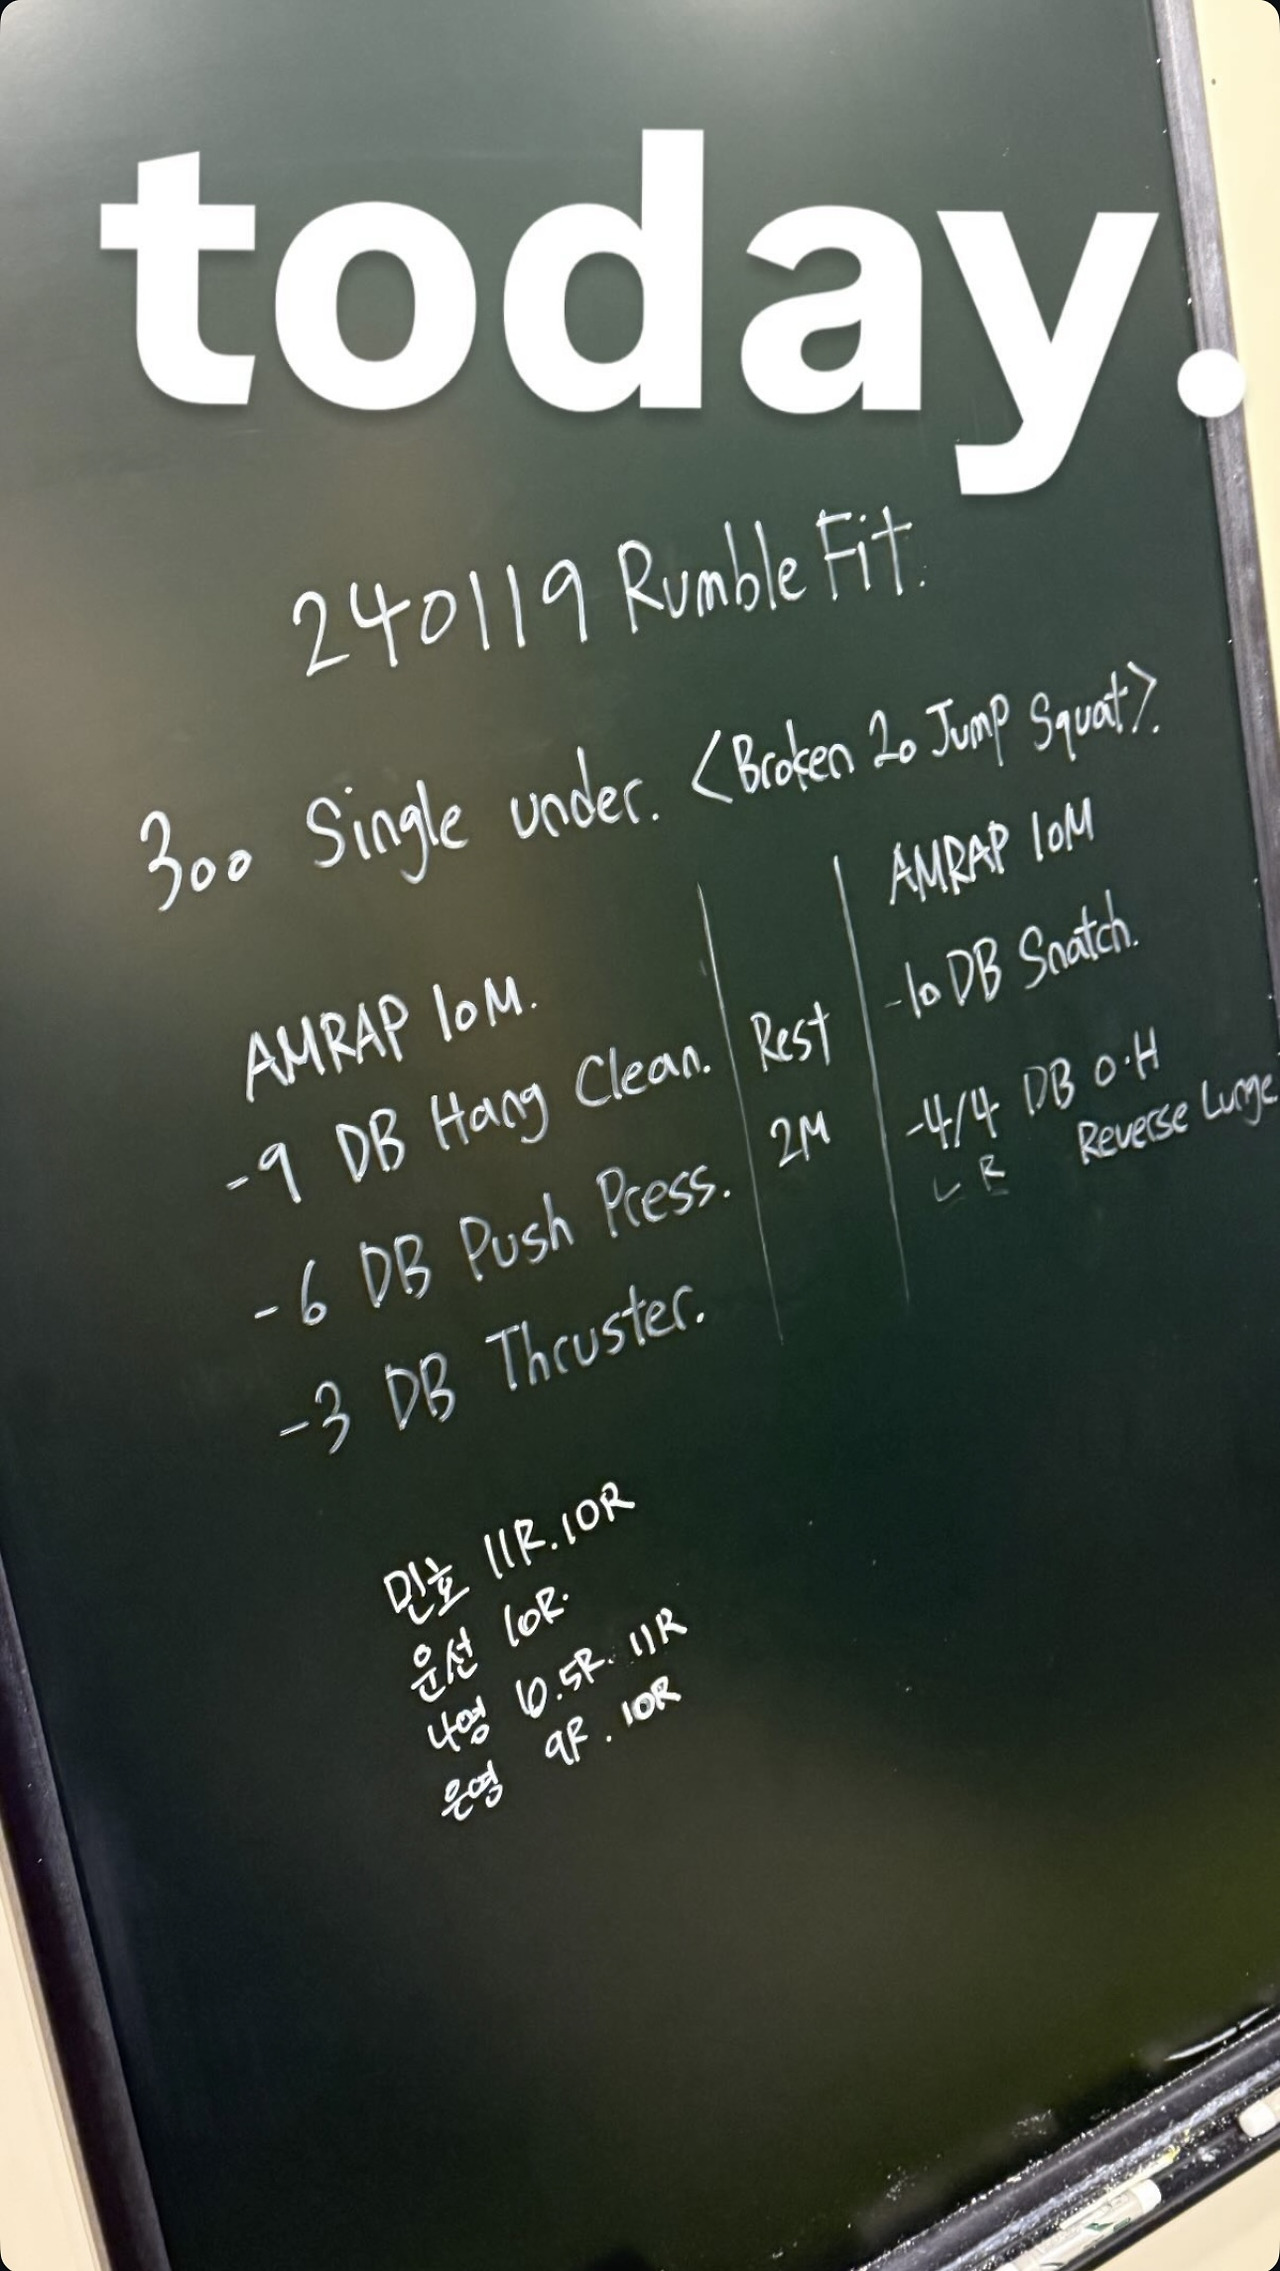 today.
240119 Rumble Fit.
300 Single under. <Broken 20 Jump Squat>.
AMRAP 10M.
-9 DB Hang Clean.
-6 DB Push Press.
-3 DB Thruster.
Rest
2M
AMRAP 10M
-10 DB Snatch.
-4/4 DB O.H
L R
Reverse Lunge
민호 11R. 10R
윤선 10R.
나영 6.5R. 11R
은영 9R. 10R